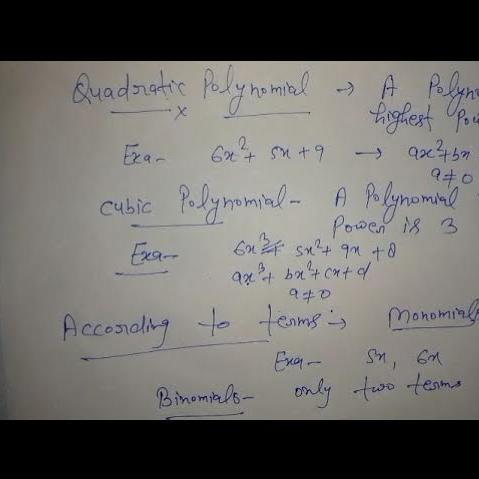 Quadratic Polynomial → A Polyn
highest Pow
Exa- 6x² + 5x + 9 → ax² + bx
a ≠ 0
Cubic Polynomial - A Polynomial
Power is 3
Exa- 6x³ + 5x² + 9x + 8
ax³ + bx² + cx + d
a ≠ 0
According to terms → Monomials
Exa- 5x, 6x
Binomials - only two terms